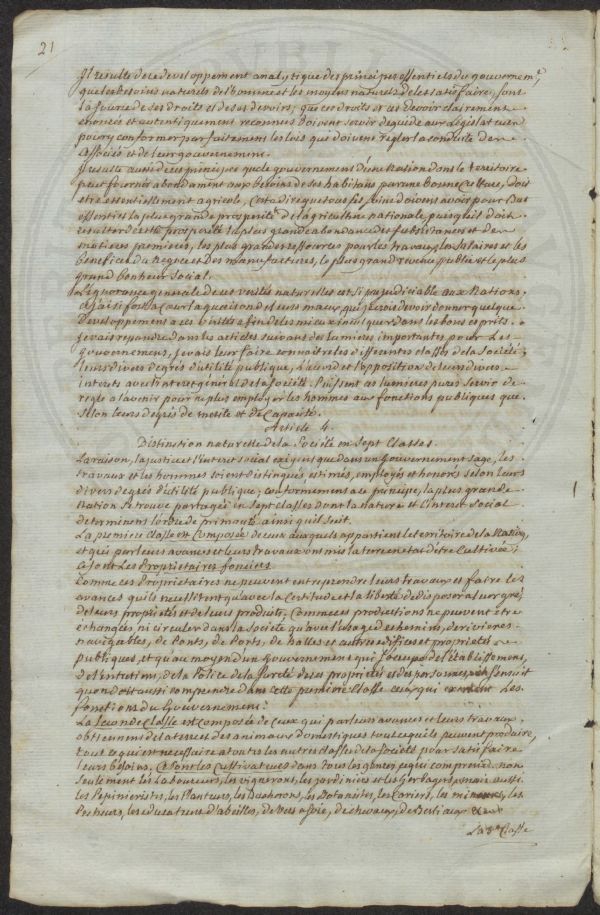 21
Il resulte de ce developpement analytique des principes essentiels du gouvernemt,
que les besoins naturels de l'homme et les moyens naturels de les satisfaire, sont
la source de ses droits et de ses devoirs; que ces droits et ces devoir clairement
enoncés et autentiquement reconnus doivent servir de guide au Législateur
pour y conformer parfaitement les lois qui doivent régler la conduite des
associés et de leur gouvernement.
Il resulte aussi de ces principes que le gouvernement d'une Nation dans le territoire
peut fournir abondament aux besoins de ses habitans par une bonne Culture, doit
etre essentiellement agricole, c'est a dire que tous les doivent avoir pour But
essentiel la plus grande prosperité de l'agriculture nationale, puisqu'il doit
resulter de cette prosperité la plus grande abondance des subsistances et des
matieres premieres, les plus grandes ressources pour les travaux, les salaires et les
benefices du Negoce et Des manufactures, le plus grand revenu public et le plus
grand bonheur social.
L'ignorance generale de ces verités naturelles est si prejudiciable aux Nations,
a fait si fort la quaison de leurs maux, que je crois devoir donner quelque
Developpement a ces verités afin de les mieux inculquer dans les bons esprits.
je vais repandre dans les articles suivans des lumieres importantes pour Les
gouvernemens, je vais leur faire connaitre les differentes classes de la Société;
leurs divers degrés d'utilité publique, L'accord et l'opposition de leurs divers
interets avec l'interet général de la Société. Puissent ces lumieres pures servir de
regle a l'avenir pour ne plus employer les hommes aux fonctions publiques que
selon leurs degrés de merite et de Capacité.
Article 4.
Distinction naturelle de la Société en Sept Classes.
La raison, la justice et l'interet social exigent que dans un Gouvernement sage, les
travaux et les hommes soient distingués, estimés, employés et honorés selon leurs
divers degrés d'utilité publique; conformement a ce principe, la plus grande
Nation se trouve partagée en Sept Classes dont la nature et l'interet Social
determinent l'ordre de primauté ainsi qu'il suit.
La premiere Classe est Composée de ceux auxquels appartient le territoire de la Nation,
et qui par leurs avances et leurs travaux ont mis la terre en etat d'etre Cultivée;
ce sont Les Proprietaires fonciers.
Comme ces Proprietaires ne peuvent entreprendre leurs travaux et faire les
avances qu'ils necessitent qu'avec la Certitude et la liberté de disposer a leur gré,
de leurs proprietés et de leurs produits; Comme ces productions ne peuvent être
echangées ni circuler dans la Societé qu'avec l'usage de chemins, de rivieres
navigables, de Ponts, de Ports, de halles et autres edifices et proprietés
publiques, et qu'au moyen d'un Gouvernement qui s'occupe de l'établissement,
de l'entretien, de la Police de la sureté de ces proprietés et des personnes, il s'ensuit
qu'on doit aussi comprendre dans cette premiere Classe ceux qui exercent Les
fonctions du Gouvernement.
La seconde Classe est composée de Ceux qui par leurs avances et leurs travaux,
obtiennent de la terre et des animaux domestiques tout ce qu'ils peuvent produire,
tout ce qui est necessaire a toutes les autres Classes de la société pour satisfaire
leurs besoins. Ce sont les Cultivateurs dans tous les genres, ce qui comprend non
seulement les Laboureurs, les vignerons, les jardiniers et les Bergers, mais aussi
les Pepinieristes, les Planteurs, les Bucherons, les Botanistes, les Cariers, les mineurs, les
Pecheurs, les educateurs d'abeilles, de Vers a soie, de chevaux, de Bestiaux &c
La 3e Classe